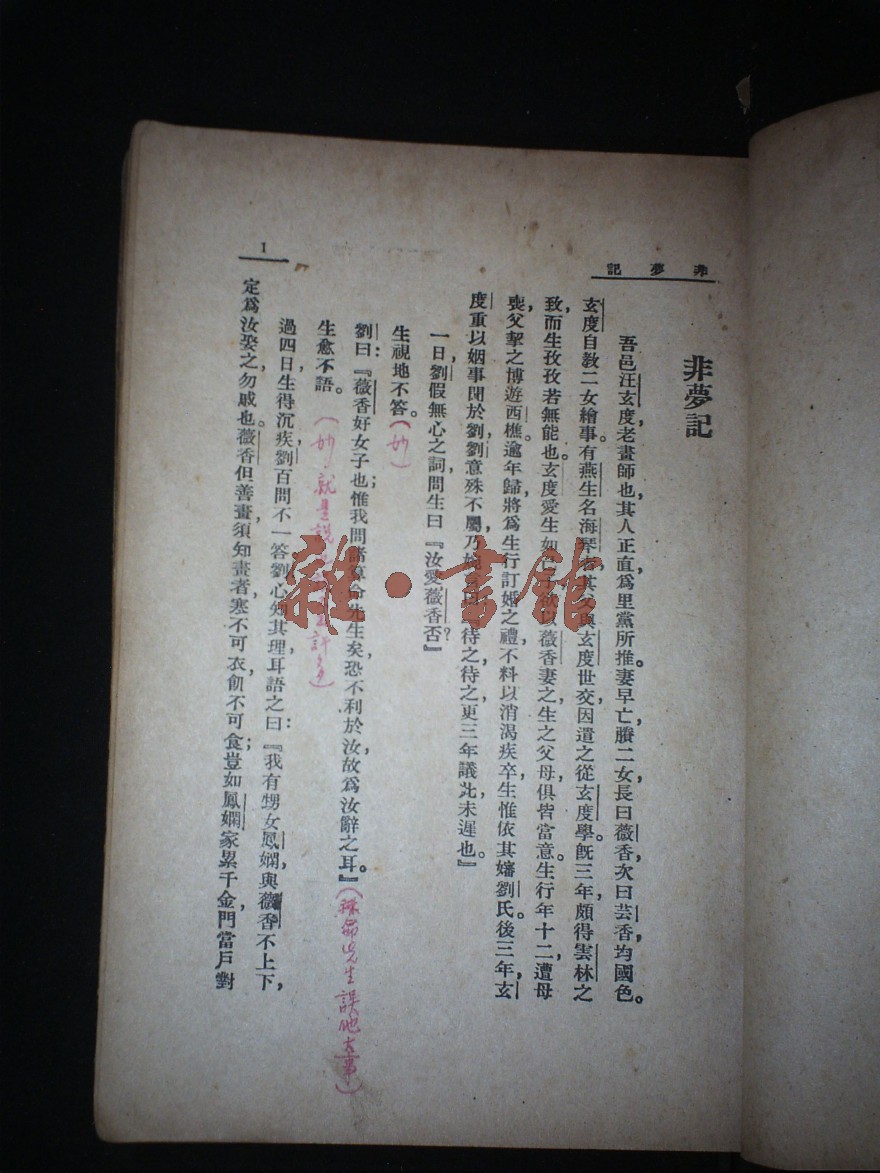 非夢記
非夢記
吾邑汪玄度，老畫師也，其人正直，爲里黨所推。妻早亡，賸二女，長曰薇香，次曰芸香，均國色。
玄度自教二女繪事。有燕生名海琴者，其父與玄度世交，因遣之從玄度學。旣三年，頗得雲林之
致，而生孜孜若無能也。玄度愛生如薇香妻之，生之父母，俱皆當意。生行年十二，遭母
喪，父挈之博遊西樵，逾年歸，將爲生行訂婚之禮，不料以消渴疾卒，生惟依其嬸劉氏。後三年，玄
度重以姻事聞於劉，劉意殊不屬，乃婉待之，待之，更三年議此未遲也。』
一日，劉假無心之詞，問生曰：『汝愛薇香否？』
生視地不答。（妙）
劉曰：『薇香好女子也；惟我問諸算命先生矣，恐不利於汝，故爲汝辭之耳。』（算命先生誤他大事）
生愈不語。（妙，就是說
過四日，生得沉疾，劉百問不一答。劉心知其理，耳語之曰：『我有甥女鳳嫻，與薇香不上下，
定爲汝娶之，勿戚也。薇香但善畫，須知畫者寒不可衣，飢不可食；豈如鳳嫻家累千金，門當戶對
1
雜·書館